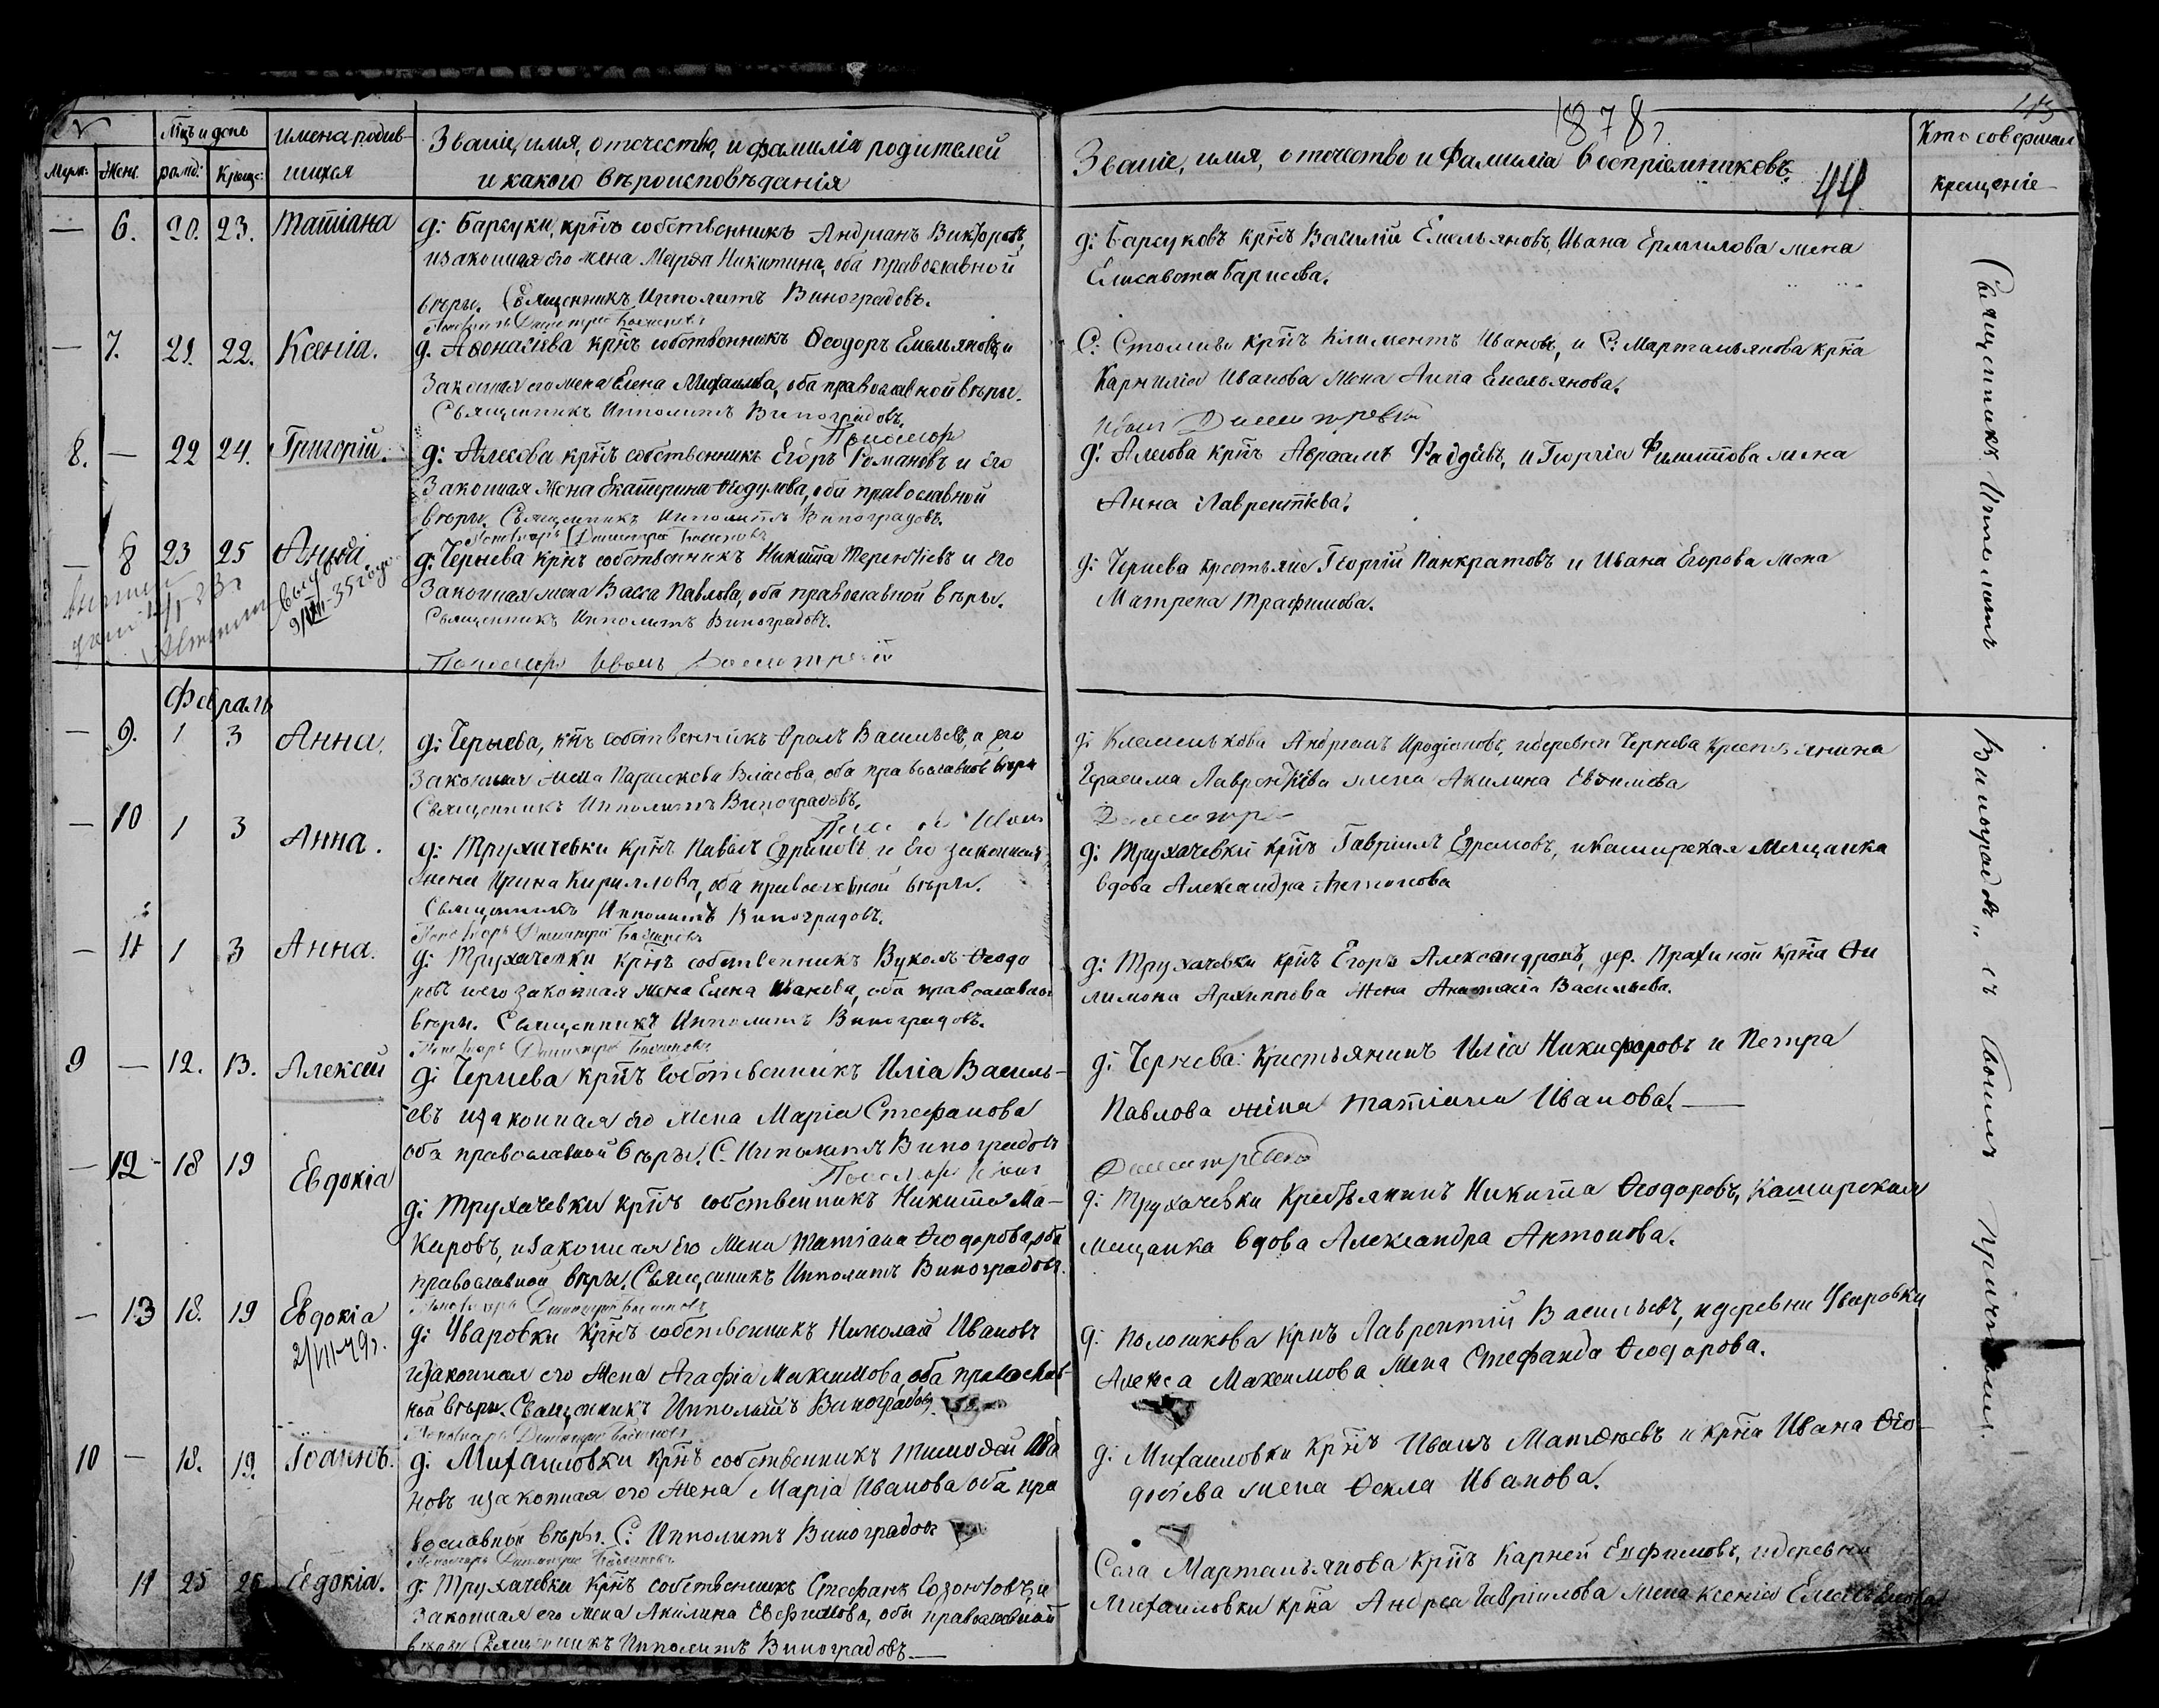 1878
44
№
Мцъ и день
Имена родив-
шихся
Муж:
Жен:
рожд:
Крещ:
Званіе, имя, отечество, и фамилія родителей
и какого вѣроисповѣданія
Званіе, имя, отечество и Фамилія воспріемниковъ.
Кто совершал
крещеніе
— 6. 20. 23. Татіана
д: Барсуки, крнъ собственникъ Андріанъ Викторовъ,
и законная его жена Марѳа Никитина, оба православной
вѣры. Священникъ Ипполитъ Виноградовъ.
д: Барсуковъ крнъ Василій Емельяновъ, Ивана Ермилова жена
Елисавета Борисова.
— 7. 21. 22. Ксенія.
д. Аѳонасіева крнъ собственникъ Ѳеодоръ Емельяновъ, и
законная его жена Елена Михаилова, оба православной вѣры.
Священникъ Ипполитъ Виноградовъ.
С: крнъ Климентъ Ивановъ, и С: Мартемьянова крна
Карнилія Иванова жена Анна Емельянова.
8. — 22 24. Григорій.
д: Алесова крнъ собственникъ Егоръ Романовъ и его
законная жена Екатерина Ѳеодулова, оба православной
вѣры. Священникъ Ипполитъ Виноградовъ.
д: Алесова крнъ Авраамъ Фаддѣевъ, и Георгія Филиппова жена
Анна Лаврентіева.
— 8 23 25 Анна
д: Чернева крнъ собственникъ Никита Терентіевъ и его
законная жена Васса Павлова, оба православной вѣры.
Священникъ Ипполитъ Виноградовъ.
Пономарь Иванъ
д: Чернева крестьяне Георгій Панкратовъ и Ивана Егорова жена
Матрена Трафимова.
Февраль
— 9. 1 3 Анна.
д: Чернева, крнъ собственникъ Фролъ Васильевъ, и его
законная жена Параскева Власова, оба православной вѣры
Священникъ Ипполитъ Виноградовъ.
д: Андреянъ Иродіоновъ, и деревни Чернева Крестьянина
Герасима Лаврентіева жена Акилина Евѳиміева
— 10 1 3 Анна.
д: Трухачевки крнъ Павелъ Ефримовъ и его законная
жена Ирина Кириллова, оба православной вѣры.
Священникъ Ипполитъ Виноградовъ.
д: Трухачевки крнъ Гавріилъ Ефремовъ, и каширская мещанка
вдова Александра Антонова
— 11 1 3 Анна.
д: Трухачевки крнъ собственникъ Вуколъ Ѳеодо
ровъ и его законная жена Елена Иванова, оба православной
вѣры. Священникъ Ипполитъ Виноградовъ.
д: Трухачевки крнъ Егоръ Александровъ, дер. крна Фи
лимона Архиппова жена Анастасія Васильева.
9 — 12. 13. Алексей
д: Чернева крнъ собственникъ Илія Василь-
евъ и законная его жена Марія Стефанова
оба православной вѣры. С. Ипполитъ Виноградовъ
д: Чернева: Крестьянинъ Илія Никифоровъ и Петра
Павлова жена Татіана Иванова. —
— 12 - 18 19 Евдокія
д: Трухачевки крнъ собственникъ Никита Ма-
каровъ, и законная его жена Татіана Ѳеодорова, оба
православной вѣры. Священникъ Ипполитъ Виноградовъ.
д: Трухачевки Крестьянинъ Никита Ѳеодоровъ, Каширская
мещанка вдова Александра Антонова.
— 13 18. 19 Евдокія
д: Уваровки крнъ собственникъ Николай Ивановъ
и законная его жена Агафія Максимова, оба православ-
ной вѣры. Священникъ Ипполитъ Виноградовъ.
д: крнъ Лаврентій Васильевъ, и деревни Уваровки
Алекса Максимова жена Стефанида Ѳеодорова.
10 — 18. 19. Іоаннъ.
д: Михаиловки крнъ собственникъ Тимоѳей Ива
новъ и законная его жена Марія Иванова оба пра
вославной вѣры. С: Ипполитъ Виноградовъ
д: Михаиловки крнъ Иванъ Матѳеевъ и крна Ивана Ѳео-
досіева жена Ѳекла Иванова.
14 25 26 Евдокія.
д: Трухачевки крнъ собственникъ Стефанъ Созонтовъ, и
законная его жена Акилина Евѳимова, оба православной
вѣры Священникъ Ипполитъ Виноградовъ —
Села Мартемьянова крнъ Карней Евфимовъ, и деревни
Михаиловки крна Андрея Гавріилова жена Ксенія Емельянова
Священникъ Ипполитъ Виноградовъ „ съ своимъ причтомъ.